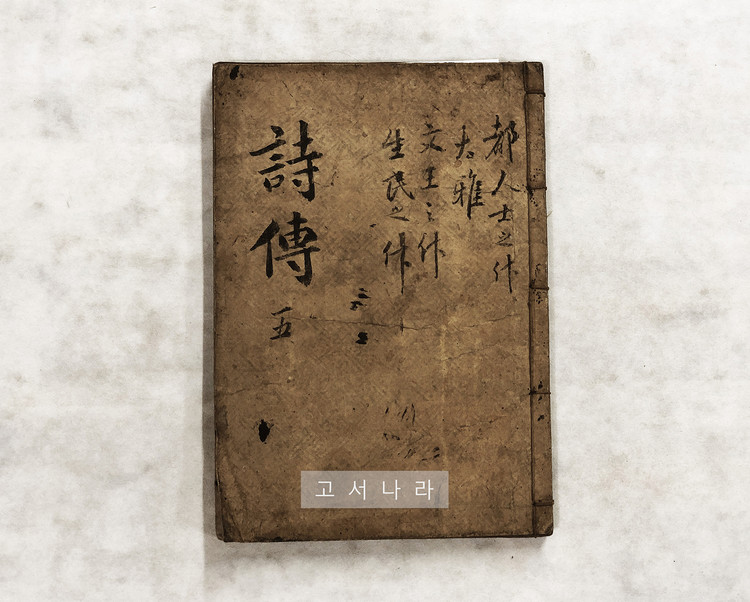 都人士之什
大雅
文王之什
生民之什
詩傳
五
고서나라